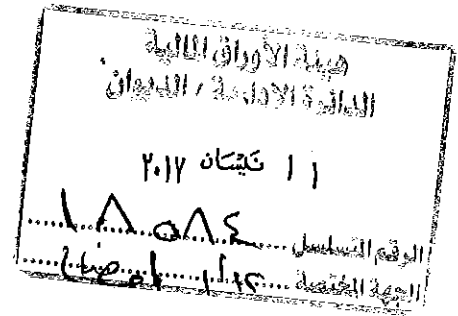 هيئة الأوراق المالية
الدائرة الإدارية / الديوان
١١ نيسان ٢٠١٧
الرقم المتسلسل ١٨٥٨٤
الجهة المختصة